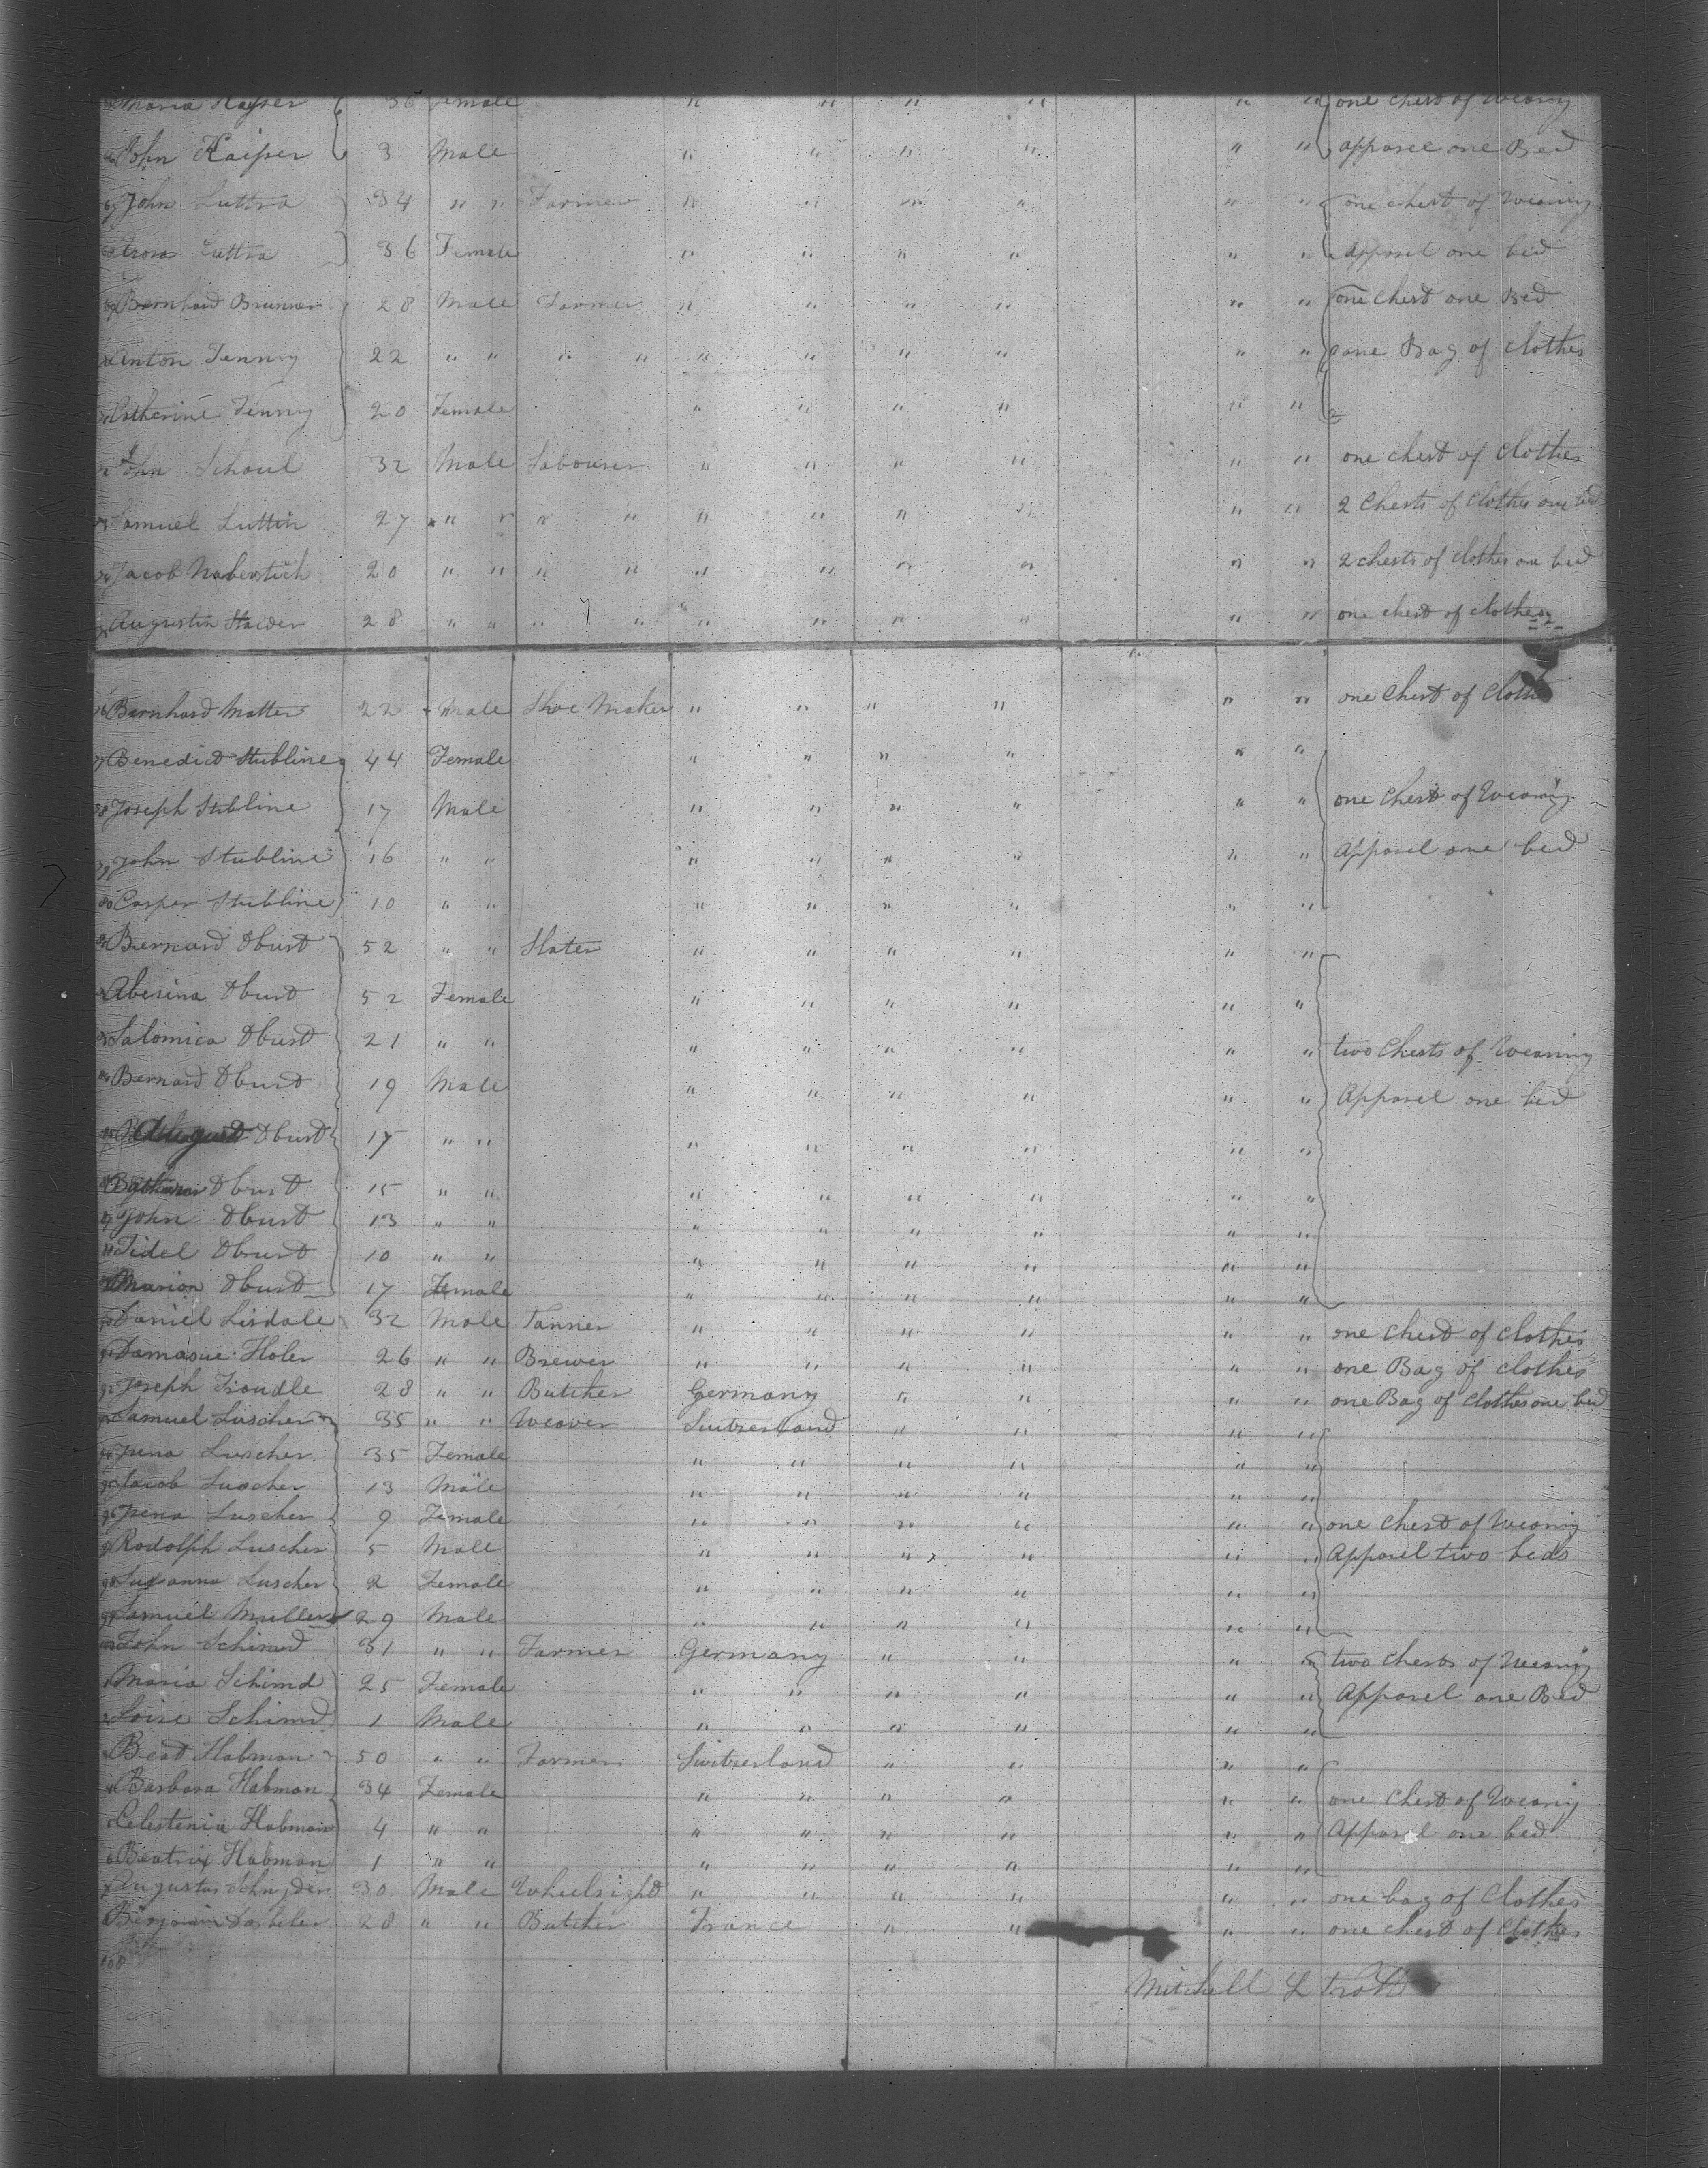 Maria Kayser 36 Female " " " " " " one chest of Wearing
John Kaiser 3 Male " " " " " " apparel one Bed
67 John Luttra 34 " " Farmer " " " " " " one chest of Wearing
Luttra 36 Female " " " " " " Apparel one bed
69 Bernhard Brunner 28 Male Farmer " " " " " " one Chest one Bed
Anton Jenny 22 " " " " " " " " " " one Bag of clothes
Catherine Jenny 20 Female " " " " " "
72 John Schoul 32 Male Labourer " " " " " " one chest of clothes
73 Samuel Luttin 27 " " " " " " " " " " 2 Chests of clothes one bed
74 Jacob Naberstich 20 " " " " " " " " " " 2 chests of clothes one bed
Augustin Stalder 28 " " " " " " " " " " one chest of clothes
76 Barnhard Matter 22 Male Shoe Maker " " " " " " one Chest of Clothes
77 Benedict Stubline 44 Female " " " " " "
78 Joseph Stubline 17 Male " " " " " " one Chest of Wearing
79 John Stubline 16 " " " " " " " " Apparel one bed
80 Casper Stubline 10 " " " " " " " "
81 Bernard Obust 52 " " Slater " " " " " "
Obust 52 Female " " " " " "
83 Salomica Obust 21 " " " " " " " " two Chests of Wearing
84 Bernard Obust 19 Male " " " " " " Apparel one bed
85 August Obust 17 " " " " " " " "
86 Obust 15 " " " " " " " "
87 John Obust 13 " " " " " " " "
88 Fidel Obust 10 " " " " " " " "
Marion Obust 17 Female " " " " " "
90 Daniel Lisdale 32 Male Tanner " " " " " " one Chest of clothes
91 Damasue Holer 26 " " Brewer " " " " " " one Bag of clothes
92 Joseph Troudle 28 " " Butcher Germany " " " " one Bag of Clothes one bed
93 Samuel Luscher 35 " " Weaver Switzerland " " " "
94 Irena Luscher 35 Female " " " " " "
95 Jacob Luscher 13 Male " " " " " "
96 Irena Luscher 9 Female " " " " " " one Chest of Wearing
97 Rodolph Luscher 5 Male " " " " " " Apparel two beds
98 Susanna Luscher 2 Female " " " " " "
99 Samuel Muller 29 Male " " " " " "
100 John Schimd 31 " " Farmer Germany " " " " two Chests of Wearing
1 Maria Schimd 25 Female " " " " " " Apparel one Bed
2 Loise Schimd 1 Male " " " " " "
Beat Habman 50 " " Farmer Switzerland " " " "
Barbara Habman 34 Female " " " " " " one Chest of Wearing
Celestenia Habman 4 " " " " " " " " Apparel one bed
6 Beatrix Habman 1 " " " " " " " "
7 Augustus Schnyder 30 Male Wheelright " " " " " " one bag of Clothes
Benjamin 28 " " Butcher France " " " " one chest of Clothes
108
Mitchell L Trott